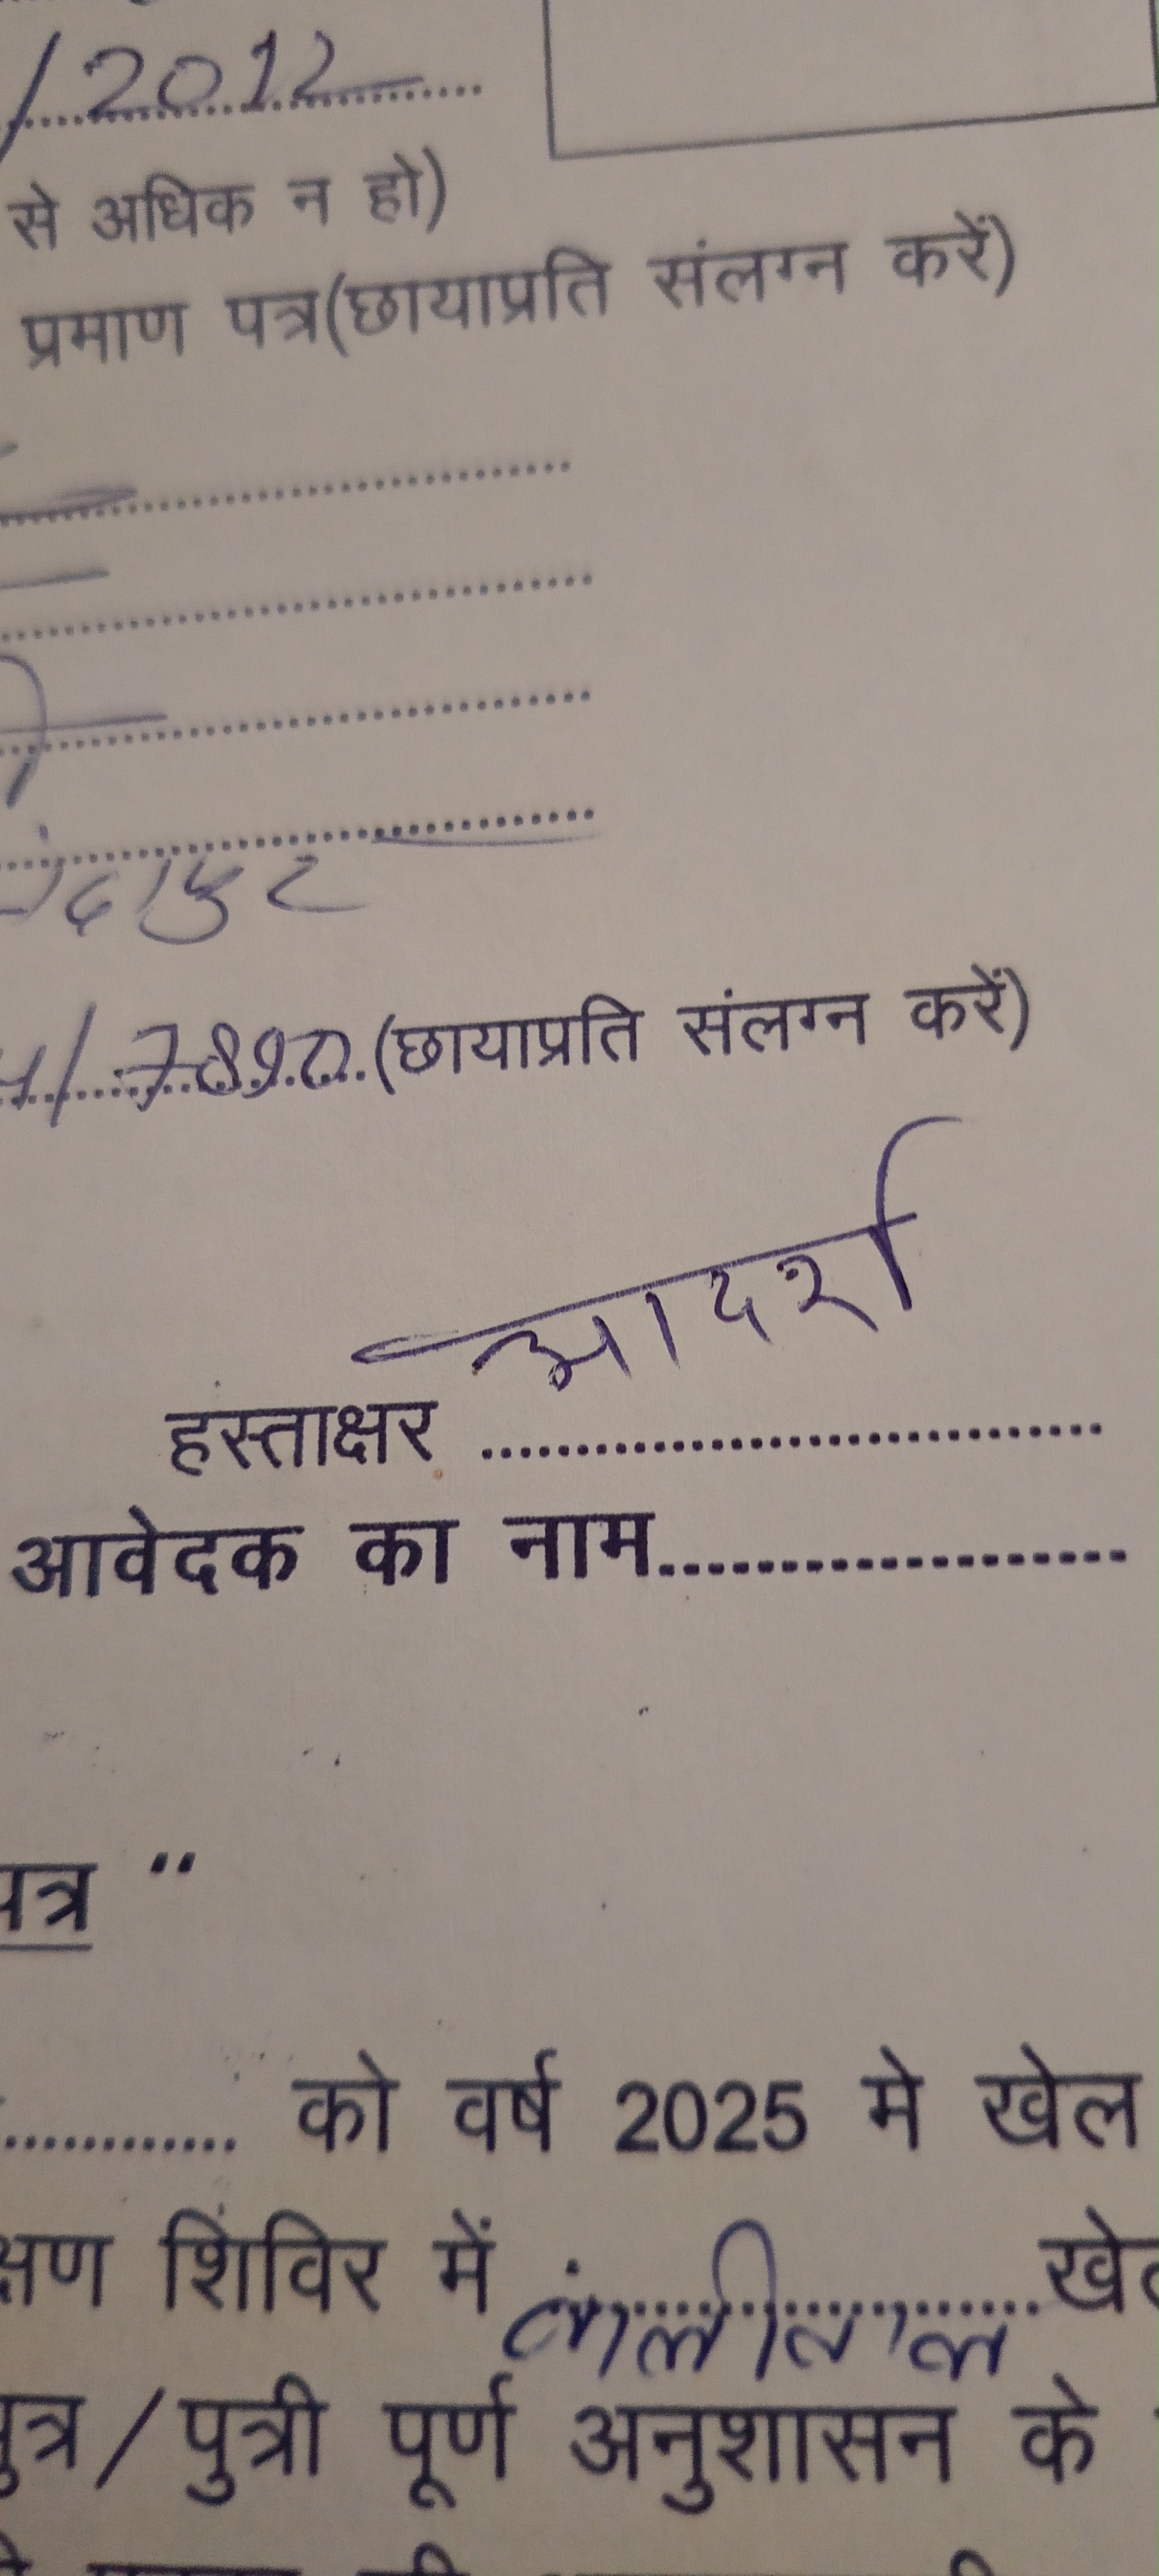 /2012
से अधिक न हो)
प्रमाण पत्र(छायाप्रति संलग्न करें)
/.7890.(छायाप्रति संलग्न करें)
आदर्श
हस्ताक्षर ................................
आवेदक का नाम....................
पत्र "
............ को वर्ष 2025 मे खेल
क्षण शिविर में ....................
पुत्र/पुत्री पूर्ण अनुशासन के